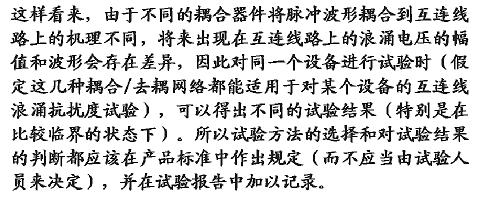 这样看来，由于不同的耦合器件将脉冲波形耦合到互连线
路上的机理不同，将来出现在互连线路上的浪涌电压的幅
值和波形会存在差异，因此对同一个设备进行试验时（假
定这几种耦合/去耦网络都能适用于对某个设备的互连线
浪涌抗扰度试验），可以得出不同的试验结果（特别是在
比较临界的状态下）。所以试验方法的选择和对试验结果
的判断都应该在产品标准中作出规定（而不应当由试验人
员来决定），并在试验报告中加以记录。